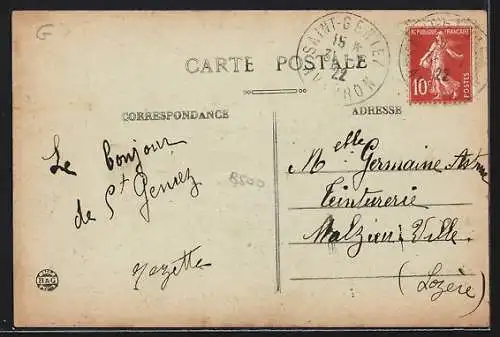 G
SAINT-GENIEZ
15 *
22
AVEYRON
REPUBLIQUE FRANÇAISE
10
POSTES
22
CARTE POSTALE
CORRESPONDANCE
ADRESSE
Le bonjour
de St Geniez
8500
Mozette
Melle Germaine
Teinturerie
Malzieu-Ville
(Lozère)
B&G